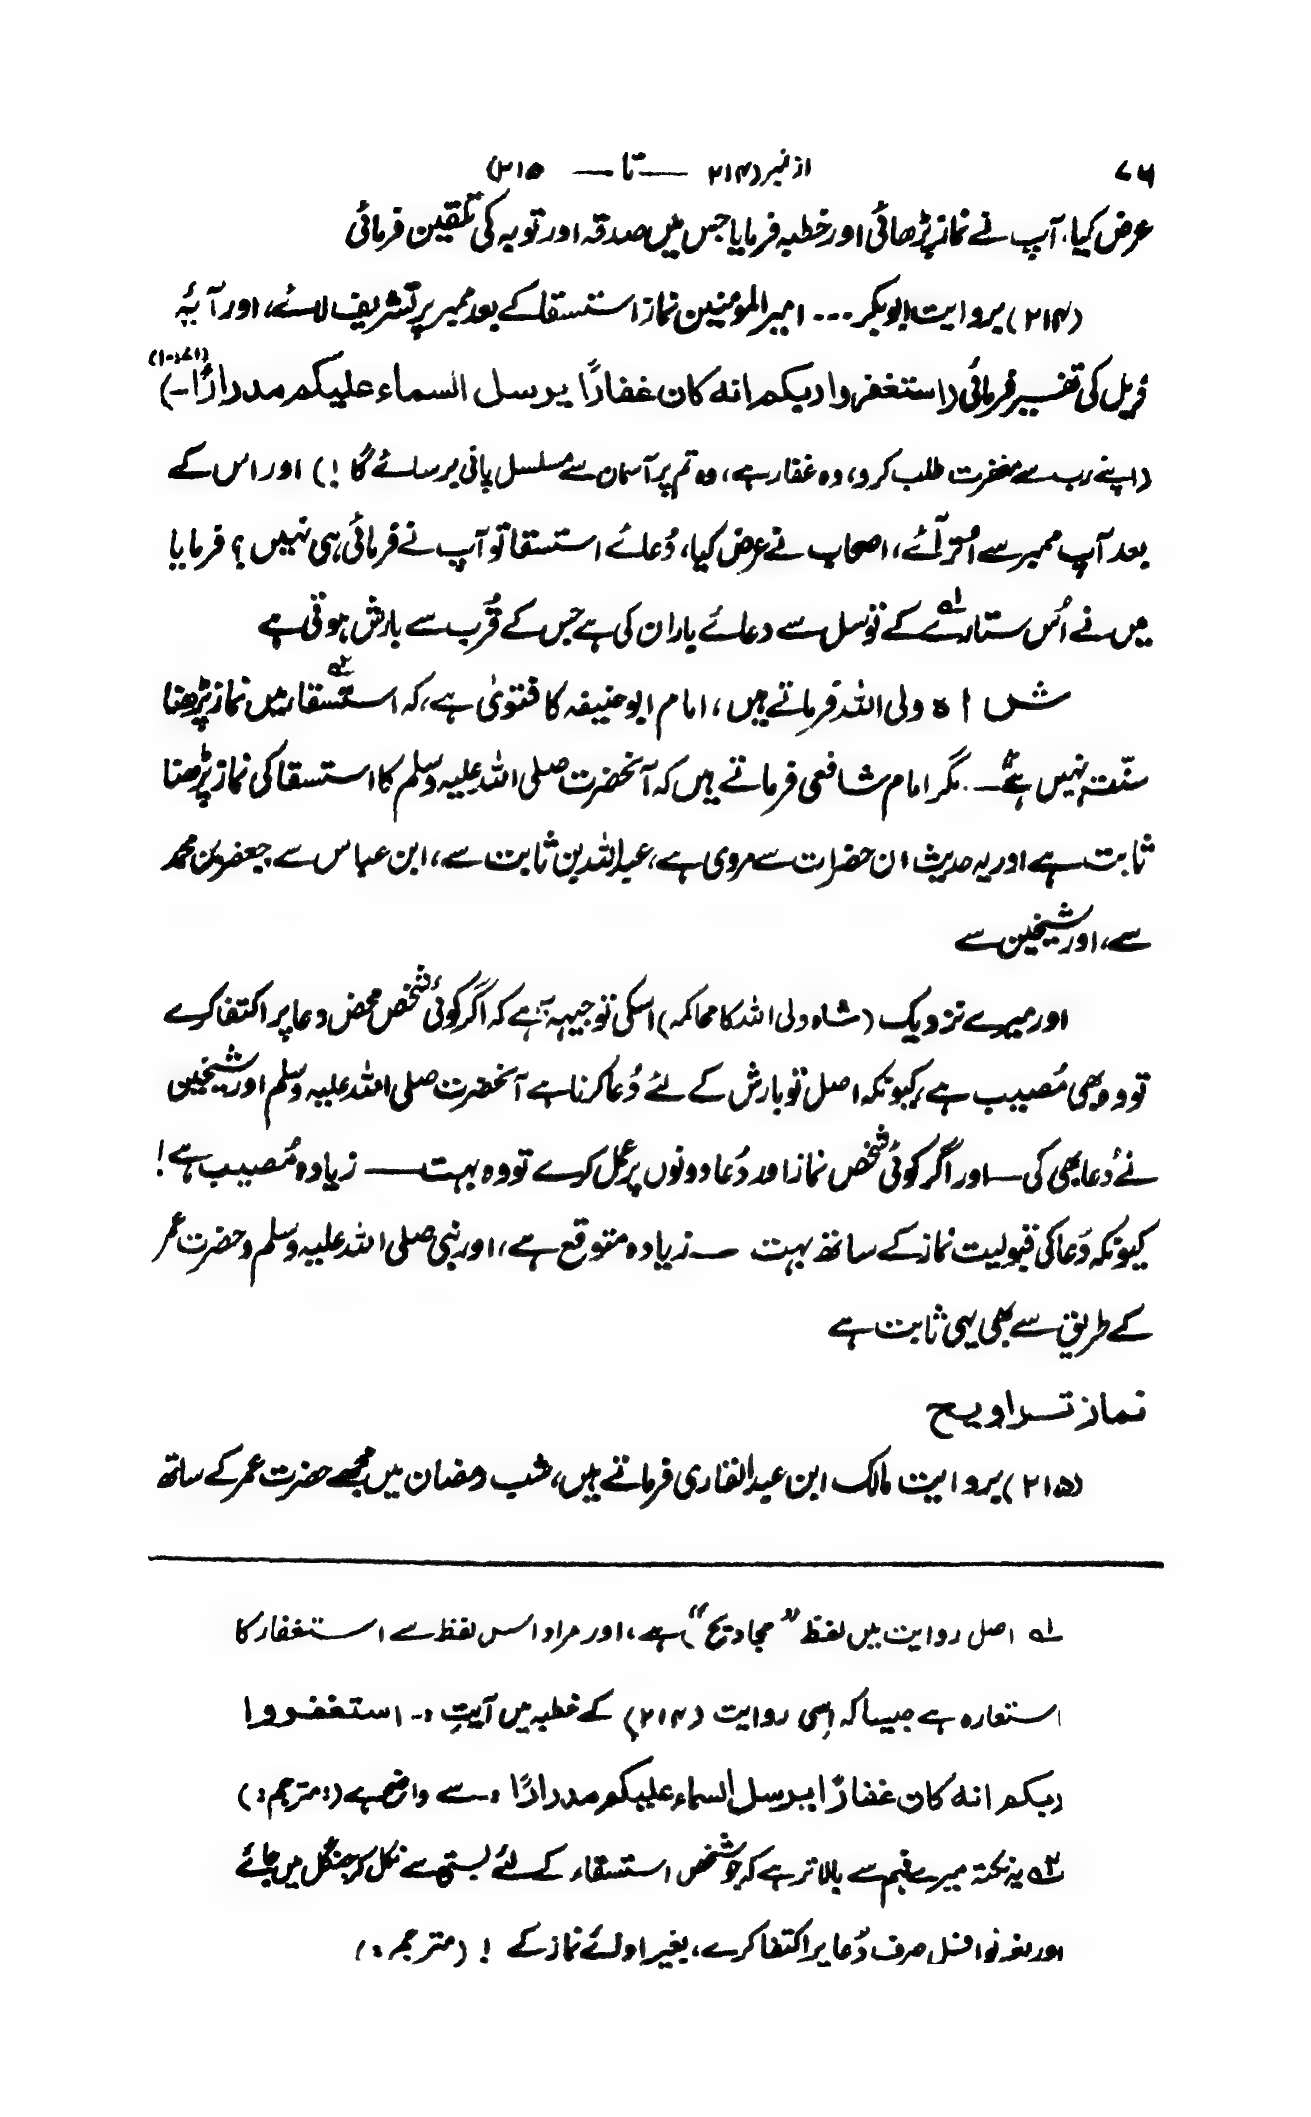 ۷۶ از نمبر (۲۱۴ — تا — ۲۱۵)
عرض کیا، آپ نے نماز پڑھائی اور خطبہ فرمایا جس میں صدقہ اور توبہ کی تلقین فرمائی
(۲۱۴) بروایت ابوبکر ... امیرالمومنین نماز استسقا کے بعد ممبر پر تشریف لائے، اور آیۂ
ذیل کی تفسیر فرمائی (استغفروا ربکم انہ کان غفارًا یرسل السماء علیکم مدرارًا-) (۱۰:۷۱)
(اپنے رب سے مغفرت طلب کرو، وہ غفار ہے، وہ تم پر آسمان سے مسلسل پانی برسائے گا !) اور اس کے
بعد آپ ممبر سے اُتر آئے، اصحاب نے عرض کیا، دُعائے استسقا تو آپ نے فرمائی ہی نہیں ؟ فرمایا
میں نے اُس ستارے۱ کے توسل سے دعائے باران کی ہے جس کے قُرب سے بارش ہوتی ہے
شاہ ولی اللہ فرماتے ہیں، امام ابوحنیفہ کا فتویٰ ہے، کہ استسقاء۲ میں نماز پڑھنا
سنّت نہیں ہے — مگر امام شافعی فرماتے ہیں کہ آنحضرت صلی اللہ علیہ وسلم کا استسقا کی نماز پڑھنا
ثابت ہے اور یہ حدیث ان حضرات سے مروی ہے، عبداللہ بن ثابت سے، ابن عباس سے جعفر بن محمد
سے، اور شیخین سے
اور میرے نزدیک (شاہ ولی اللہ کا محاکمہ) اسکی توجیہہ یہ ہے کہ اگر کوئی شخص محض دعا پر اکتفا کرے
تو وہ بھی مُصیب ہے، کیونکہ اصل تو بارش کے لئے دُعا کرنا ہے آنحضرت صلی اللہ علیہ وسلم اور شیخین
نے دُعا بھی کی — اور اگر کوئی شخص نماز اور دُعا دونوں پر عمل کرے تو وہ بہت — زیادہ مُصیب ہے !
کیونکہ دُعا کی قبولیت نماز کے ساتھ بہت — زیادہ متوقع ہے، اور نبی صلی اللہ علیہ وسلم و حضرت عمر
کے طریق سے بھی یہی ثابت ہے
نماز تراویح
(۲۱۵) بروایت مالک ابن عبدالقاری فرماتے ہیں، شب رمضان میں مجھے حضرت عمر کے ساتھ
۱؎ اصل روایت میں لفظ "مجادیح" ہے، اور مراد اس لفظ سے استغفار کا
استعارہ ہے جیسا کہ اِسی روایت (۲۱۴) کے خطبہ میں آیتِ :- استغفروا
ربکم انہ کان غفارًا یرسل السماء علیکم مدرارًا :- سے واضح ہے (:مترجم:)
۲؎ یہ نکتہ میرے فہم سے بالاتر ہے کہ جو شخص استسقاء کے لئے بستی سے نکل کر جنگل میں جائے
اور صرف دُعا پر اکتفا کرے، بغیر اولئے نماز کے ! (مترجم:)